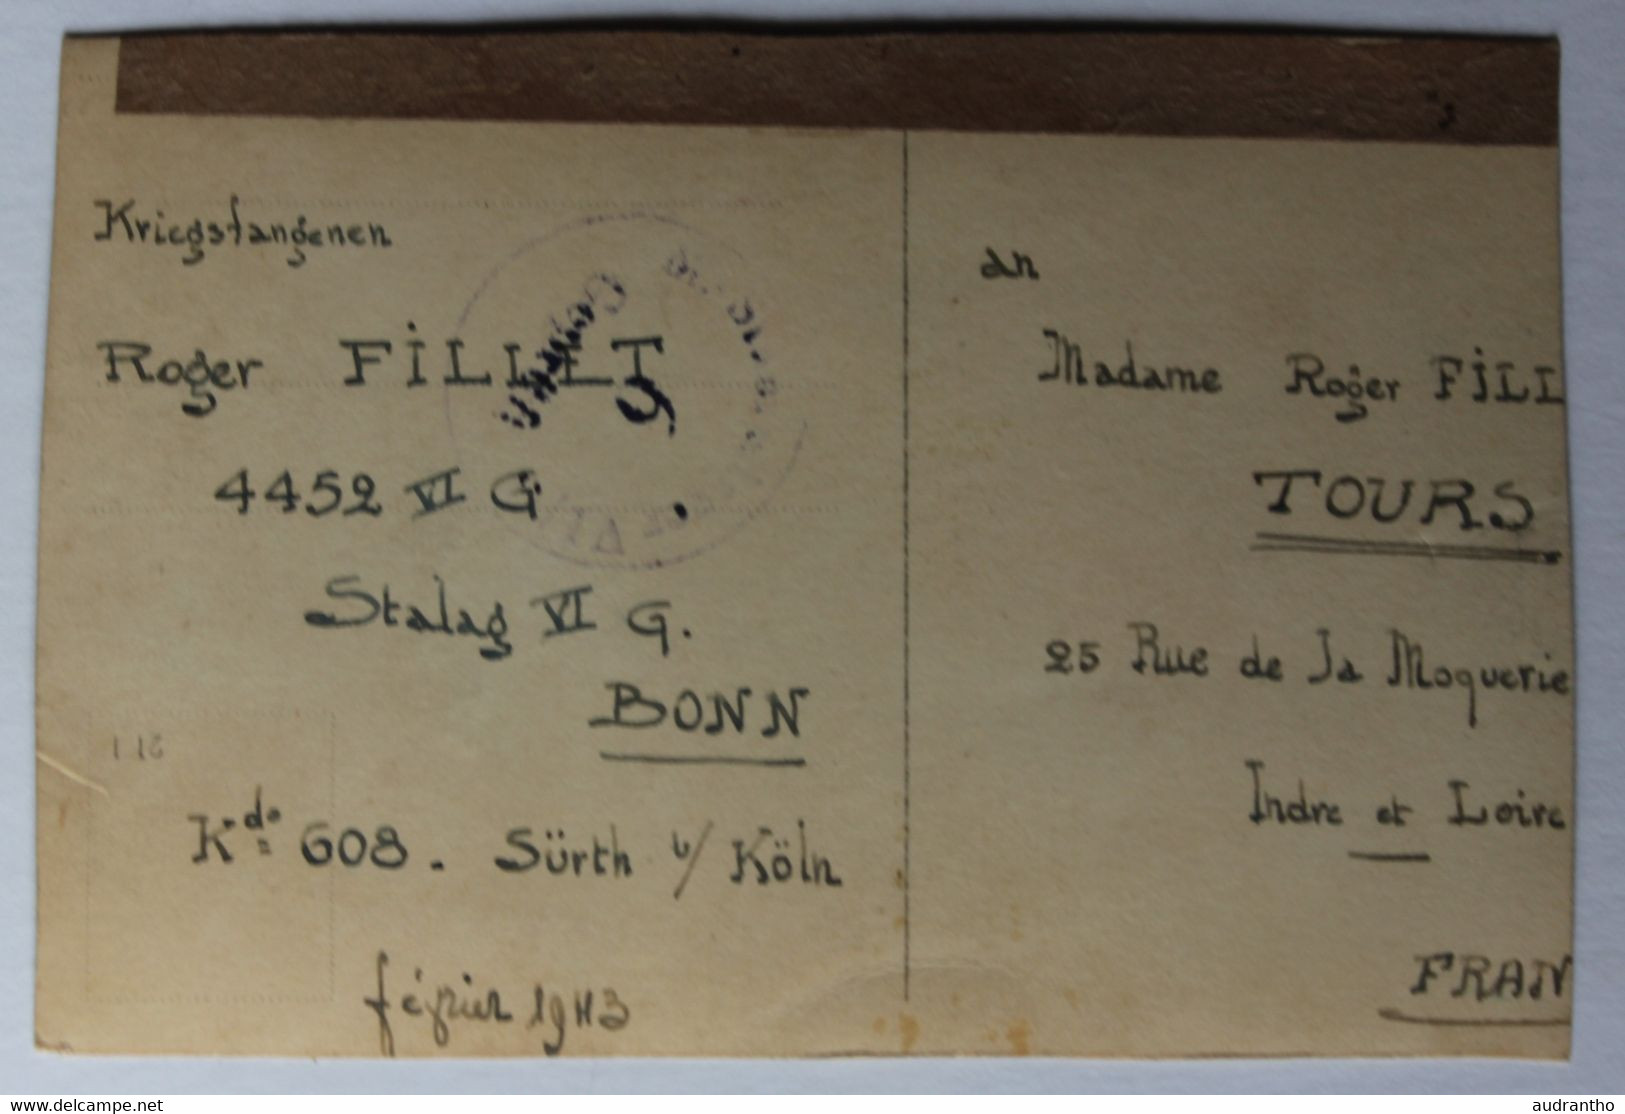 Kriegsfangenen
Roger FiLLET
4452 VI G.
Stalag VI G.
BONN
Kdo 608. Sürth b/ Köln
février 1943
an
Madame Roger FiLL
TOURS
25 Rue de la Moquerie
Indre et Loire
FRAN
Geprüft
9
www.delcampe.net
audrantho